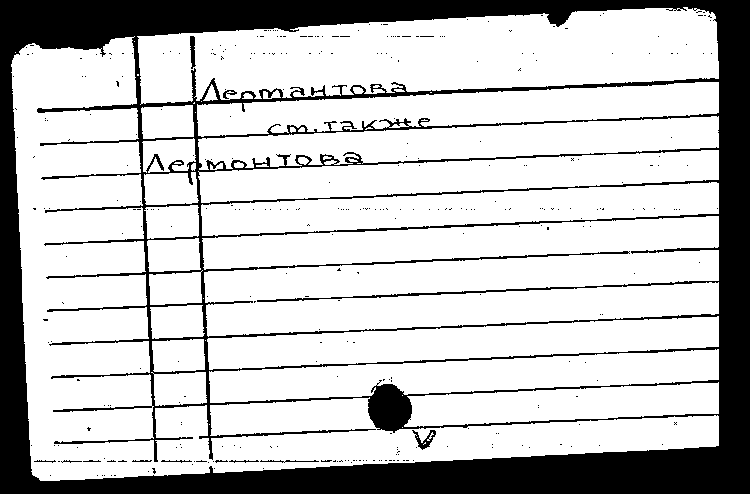 Лермантова
см. также
Лермонтова
V